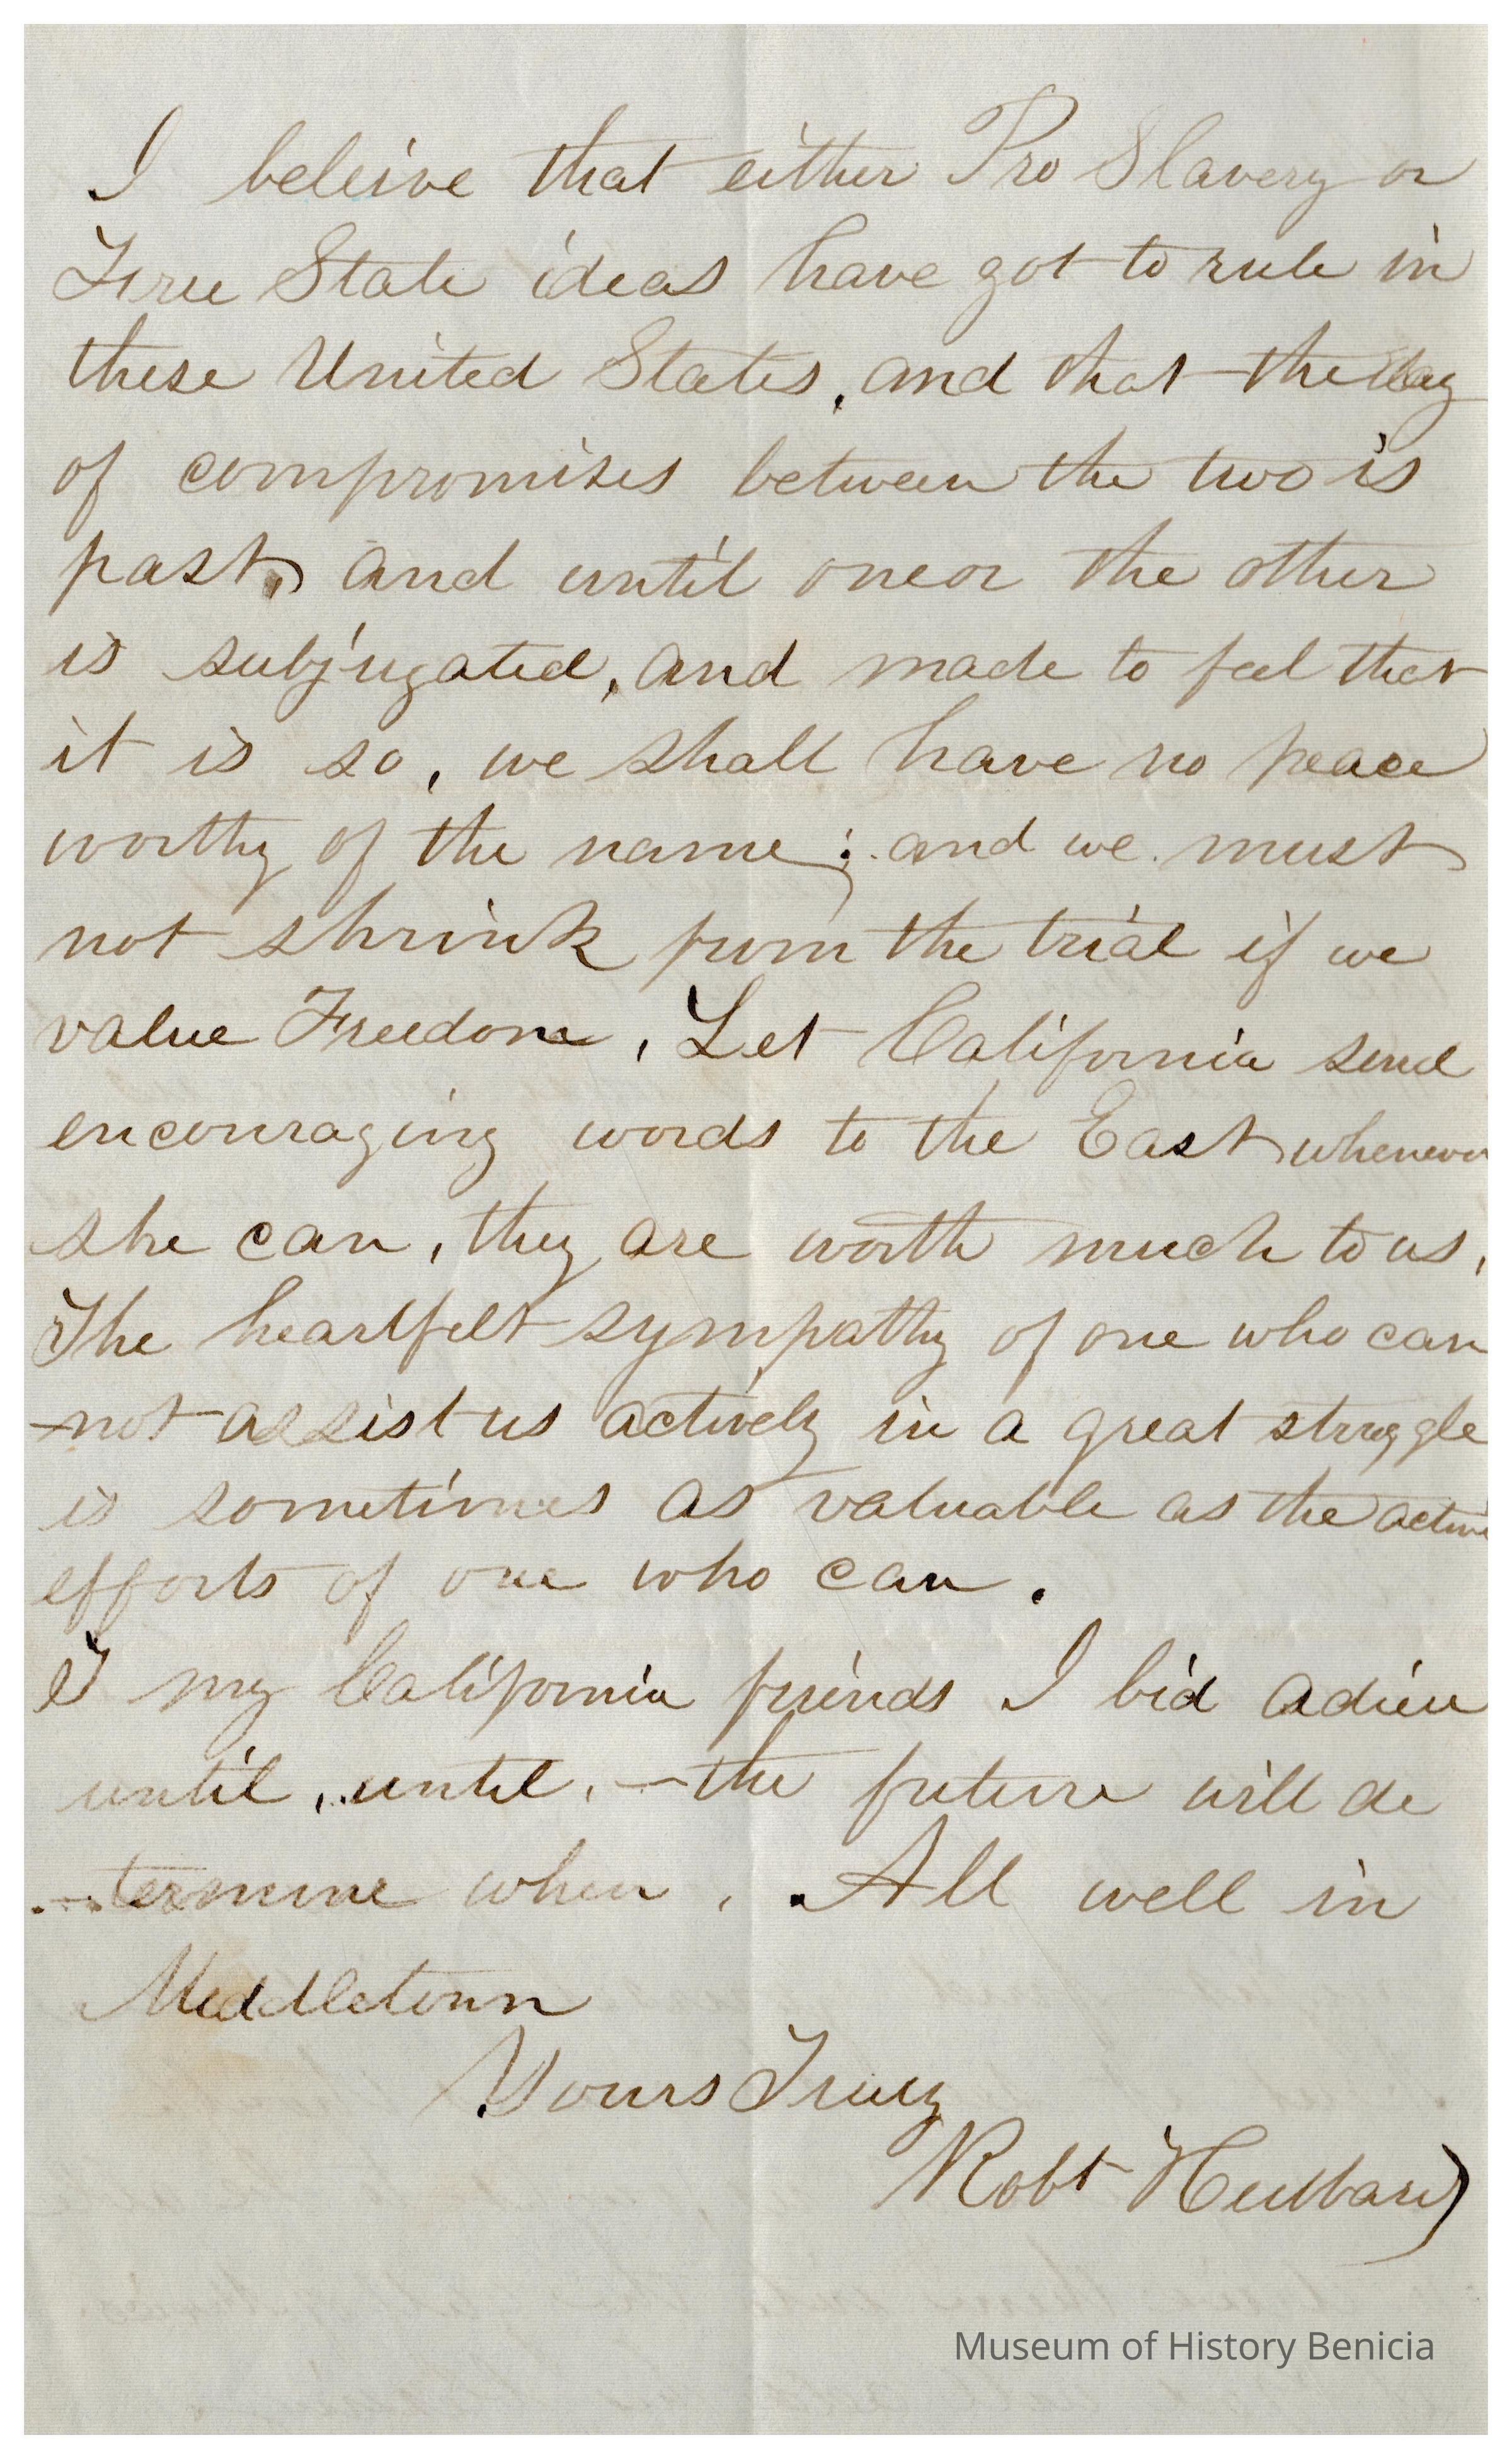 I beleive that either Pro Slavery or
Free State ideas have got to rule in
these United States, and that the day
of compromises between the two is
past, and until one or the other
is subjugated, and made to feel that
it is so, we shall have no peace
worthy of the name; and we must
not shrink from the trial if we
value Freedom. Let California send
encouraging words to the East whenever
she can, they are worth much to us.
The heartfelt sympathy of one who can
not assist us actively in a great struggle
is sometimes as valuable as the active
efforts of one who can.
my California friends I bid adieu
until, until, — the future will de
termine when. All well in
Middletown
Yours Truly
Robt Hubbard
Museum of History Benicia